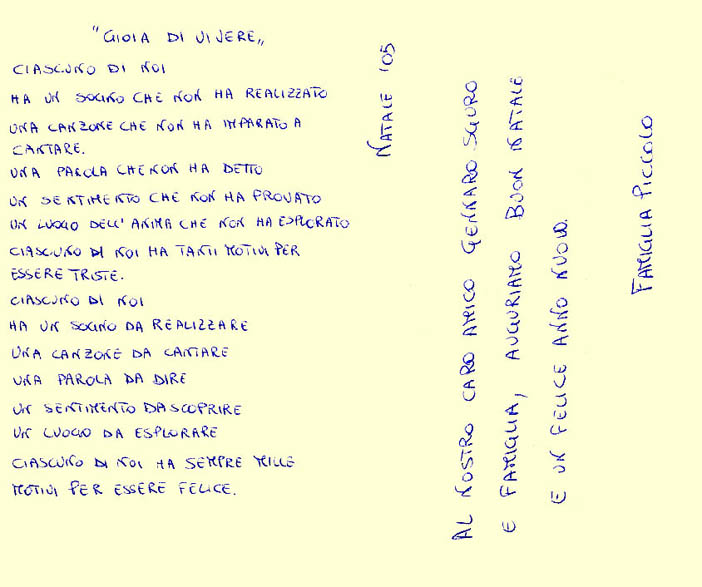 "GIOIA DI VIVERE„
CIASCUNO DI NOI
HA UN SOGNO CHE NON HA REALIZZATO
UNA CANZONE CHE NON HA IMPARATO A
CANTARE.
UNA PAROLA CHE NON HA DETTO
UN SENTIMENTO CHE NON HA PROVATO
UN LUOGO DELL'ANIMA CHE NON HA ESPLORATO
CIASCUNO DI NOI HA TANTI MOTIVI PER
ESSERE TRISTE.
CIASCUNO DI NOI
HA UN SOGNO DA REALIZZARE
UNA CANZONE DA CANTARE
UNA PAROLA DA DIRE
UN SENTIMENTO DA SCOPRIRE
UN LUOGO DA ESPLORARE
CIASCUNO DI NOI HA SEMPRE MILLE
MOTIVI PER ESSERE FELICE.
NATALE '05
AL NOSTRO CARO AMICO GENNARO SGURO
E FAMIGLIA, AUGURIAMO BUON NATALE
E UN FELICE ANNO NUOVO.
FAMIGLIA PICCOLO